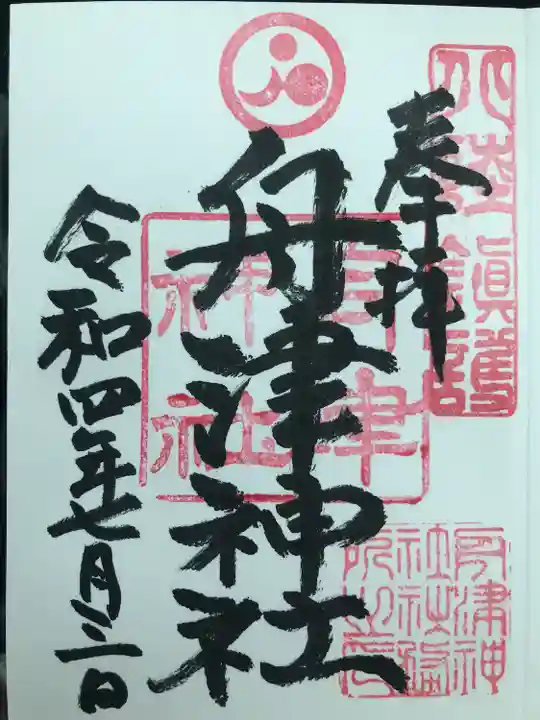 北陸鎭護
奉拝
舟津神社
舟津神社
舟津神
社社務
所之印
令和四年七月三日